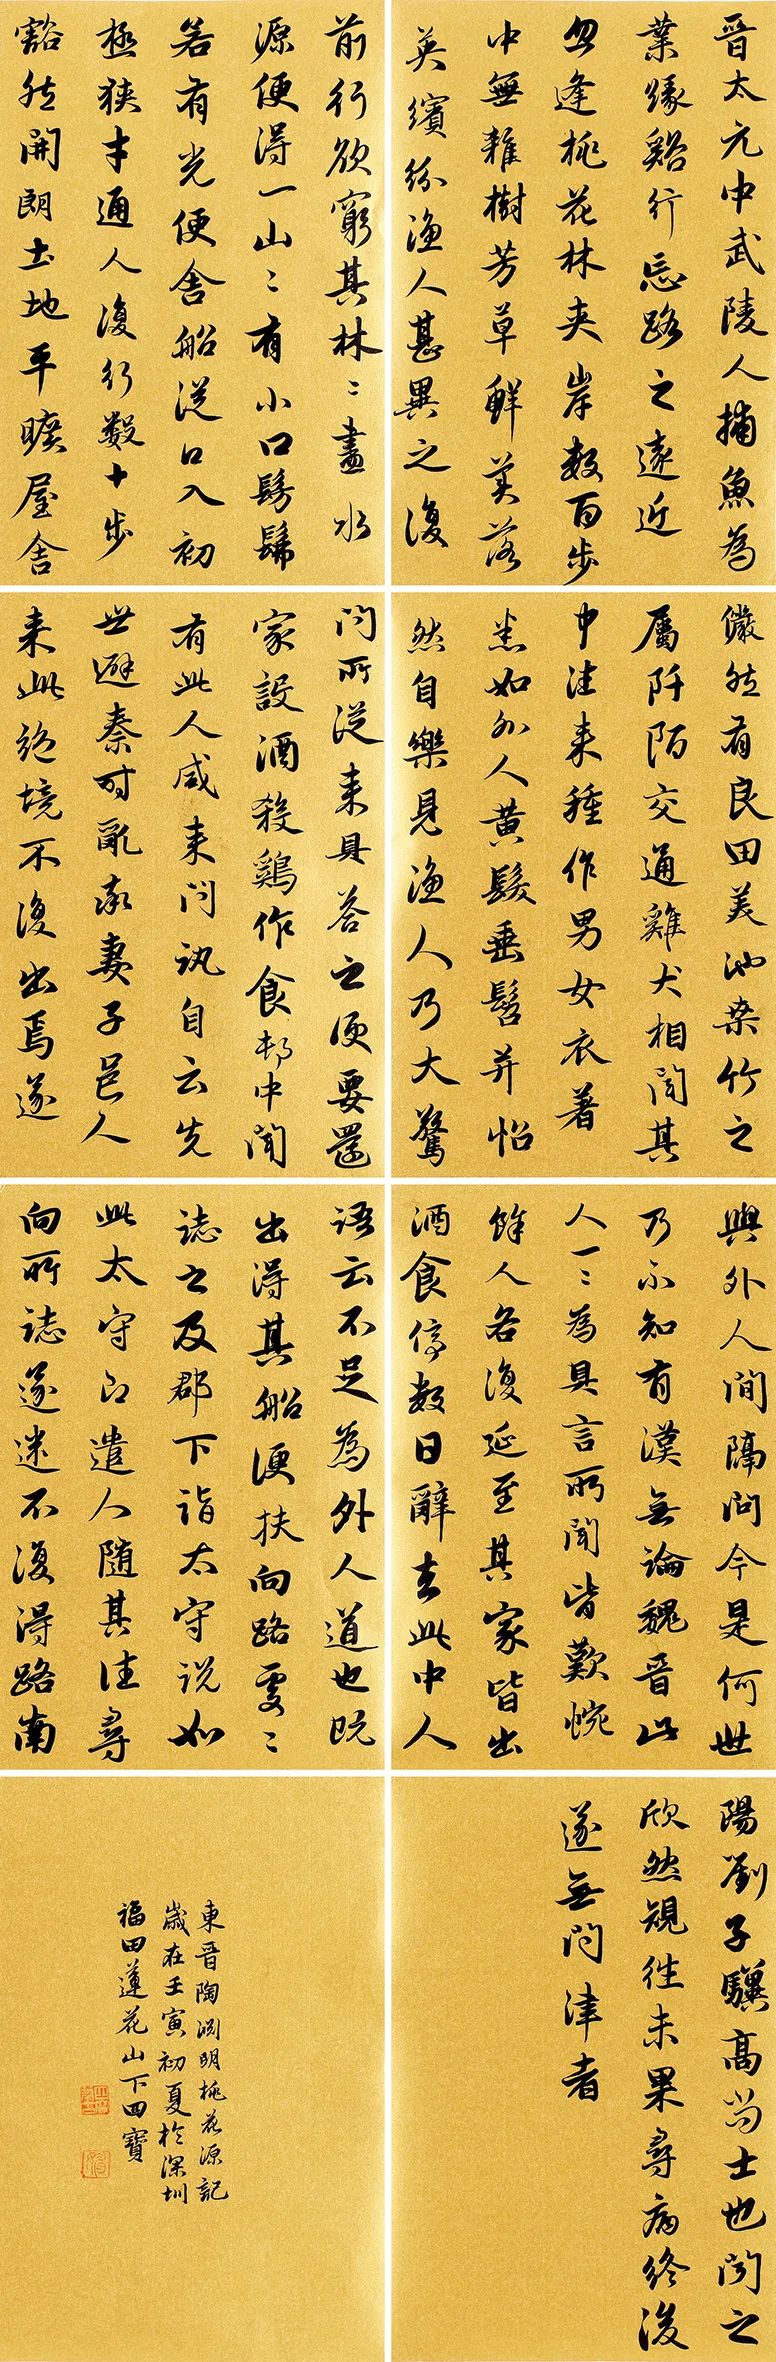 晋太元中武陵人捕魚為
業緣谿行忘路之遠近
忽逢桃花林夾岸數百步
中無雜樹芳草鮮美落
英繽紛漁人甚異之復
前行欲窮其林〻盡水
源便得一山〻有小口髣髴
若有光便舍船從口入初
極狹才通人復行數十步
豁然開朗土地平曠屋舍
儼然有良田美池桑竹之
屬阡陌交通雞犬相聞其
中往来種作男女衣著
悉如外人黄髮垂髫并怡
然自樂見漁人乃大驚
問所從来具答之便要還
家設酒殺鷄作食邨中聞
有此人咸来問訊自云先
世避秦時亂率妻子邑人
来此絶境不復出焉遂
與外人間隔問今是何世
乃不知有漢無論魏晋此
人一〻為具言所聞皆歎惋
餘人各復延至其家皆出
酒食停數日辭去此中人
語云不足為外人道也既
出得其船便扶向路處〻
誌之及郡下詣太守説如
此太守即遣人随其往尋
向所誌遂迷不復得路南
陽劉子驥高尚士也聞之
欣然規往未果尋病終後
遂無問津者
東晋陶淵明桃花源記
歲在壬寅初夏於深圳
福田蓮花山下四寶